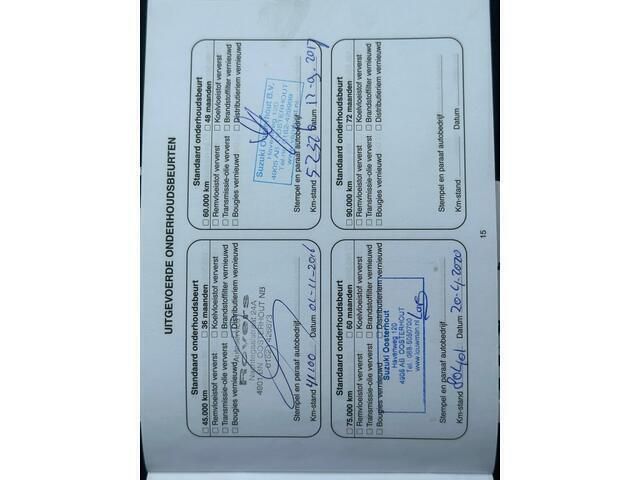 UITGEVOERDE ONDERHOUDSBEURTEN
Standaard onderhoudsbeurt
□ 45.000 km □ 36 maanden
□ Remvloeistof ververst □ Koelvloeistof ververst
□ Transmissie-olie ververst □ Brandstoffilter vernieuwd
□ Bougies vernieuwd □ Distributieriem vernieuwd
Rovers
4901 EN OOSTERHOUT NB
Stempel en paraaf autobedrijf
Km-stand 41100 Datum 01-11-2016
Standaard onderhoudsbeurt
□ 60.000 km □ 48 maanden
□ Remvloeistof ververst □ Koelvloeistof ververst
□ Transmissie-olie ververst □ Brandstoffilter vernieuwd
□ Bougies vernieuwd □ Distributieriem vernieuwd
Suzuki Oosterhout B.V.
Havenweg 120
4905 AB OOSTERHOUT
Stempel en paraaf autobedrijf
Km-stand Datum 12-9-2017
Standaard onderhoudsbeurt
□ 75.000 km □ 60 maanden
□ Remvloeistof ververst □ Koelvloeistof ververst
□ Transmissie-olie ververst □ Brandstoffilter vernieuwd
□ Bougies vernieuwd □ Distributieriem vernieuwd
Suzuki Oosterhout
Havenweg 120
4905 AB OOSTERHOUT
Tel. 088-5030700
www.louwman.nl
Stempel en paraaf autobedrijf
Km-stand 80401 Datum 20-4-2020
Standaard onderhoudsbeurt
□ 90.000 km □ 72 maanden
□ Remvloeistof ververst □ Koelvloeistof ververst
□ Transmissie-olie ververst □ Brandstoffilter vernieuwd
□ Bougies vernieuwd □ Distributieriem vernieuwd
Stempel en paraaf autobedrijf
Km-stand Datum
15